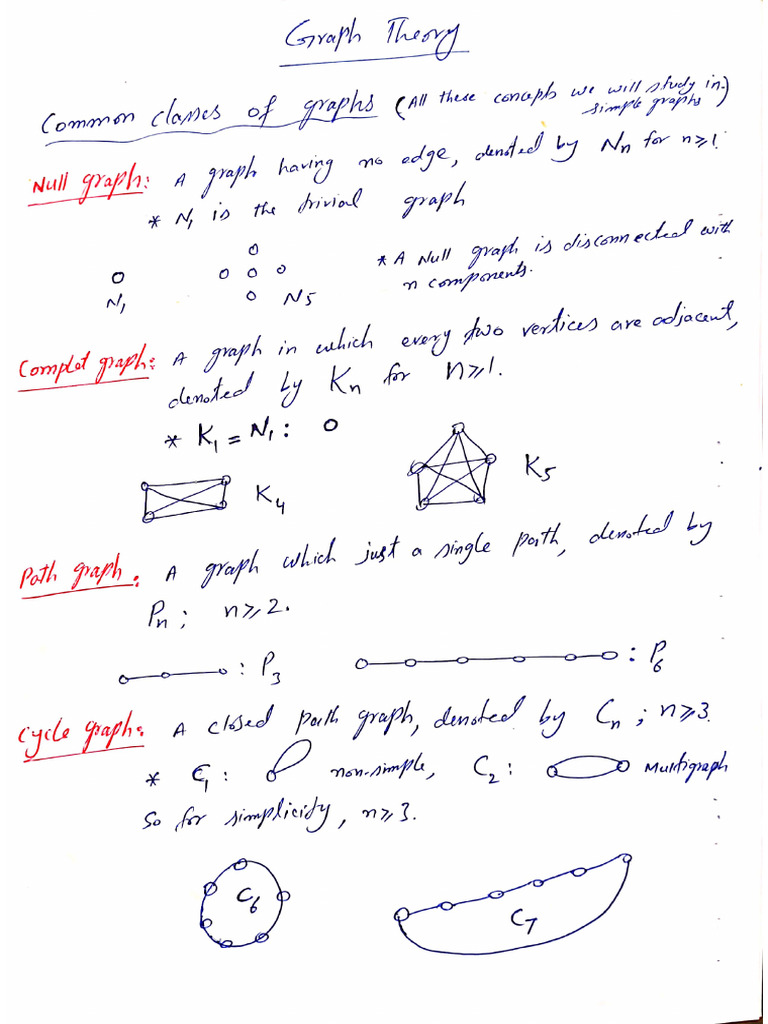 Graph Theory
Common classes of graphs (All these concepts we will study in simple graphs)
Null graph: A graph having no edge, denoted by Nn for n≥1.
* N1 is the trivial graph
* A Null graph is disconnected with n components.
N1
N5
Complet graph: A graph in which every two vertices are adjacent,
denoted by Kn for n≥1.
* K1 = N1:
K4
K5
Path graph: A graph which just a single path, denoted by
Pn; n≥2.
: P3
: P6
Cycle graph: A closed path graph, denoted by Cn; n≥3.
* C1: non-simple, C2: Multigraph
So for simplicity, n≥3.
C6
C7